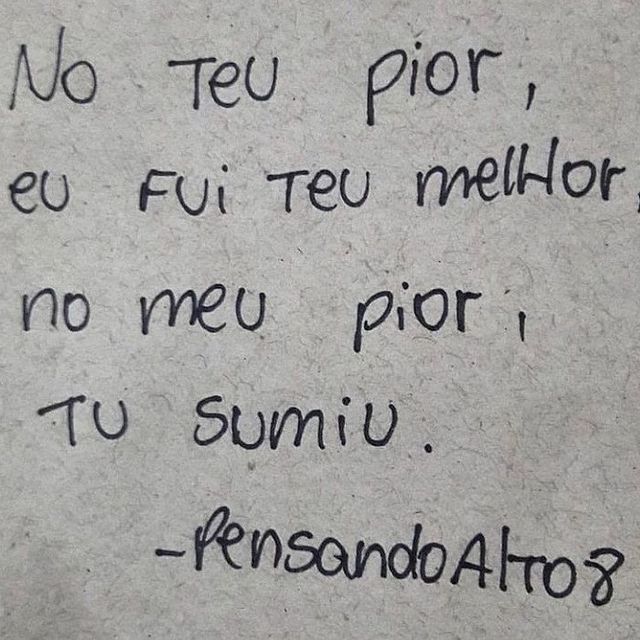 No Teu pior,
eu Fui Teu melHor,
no meu pior,
TU sumiu.
-PensandoAlTo8